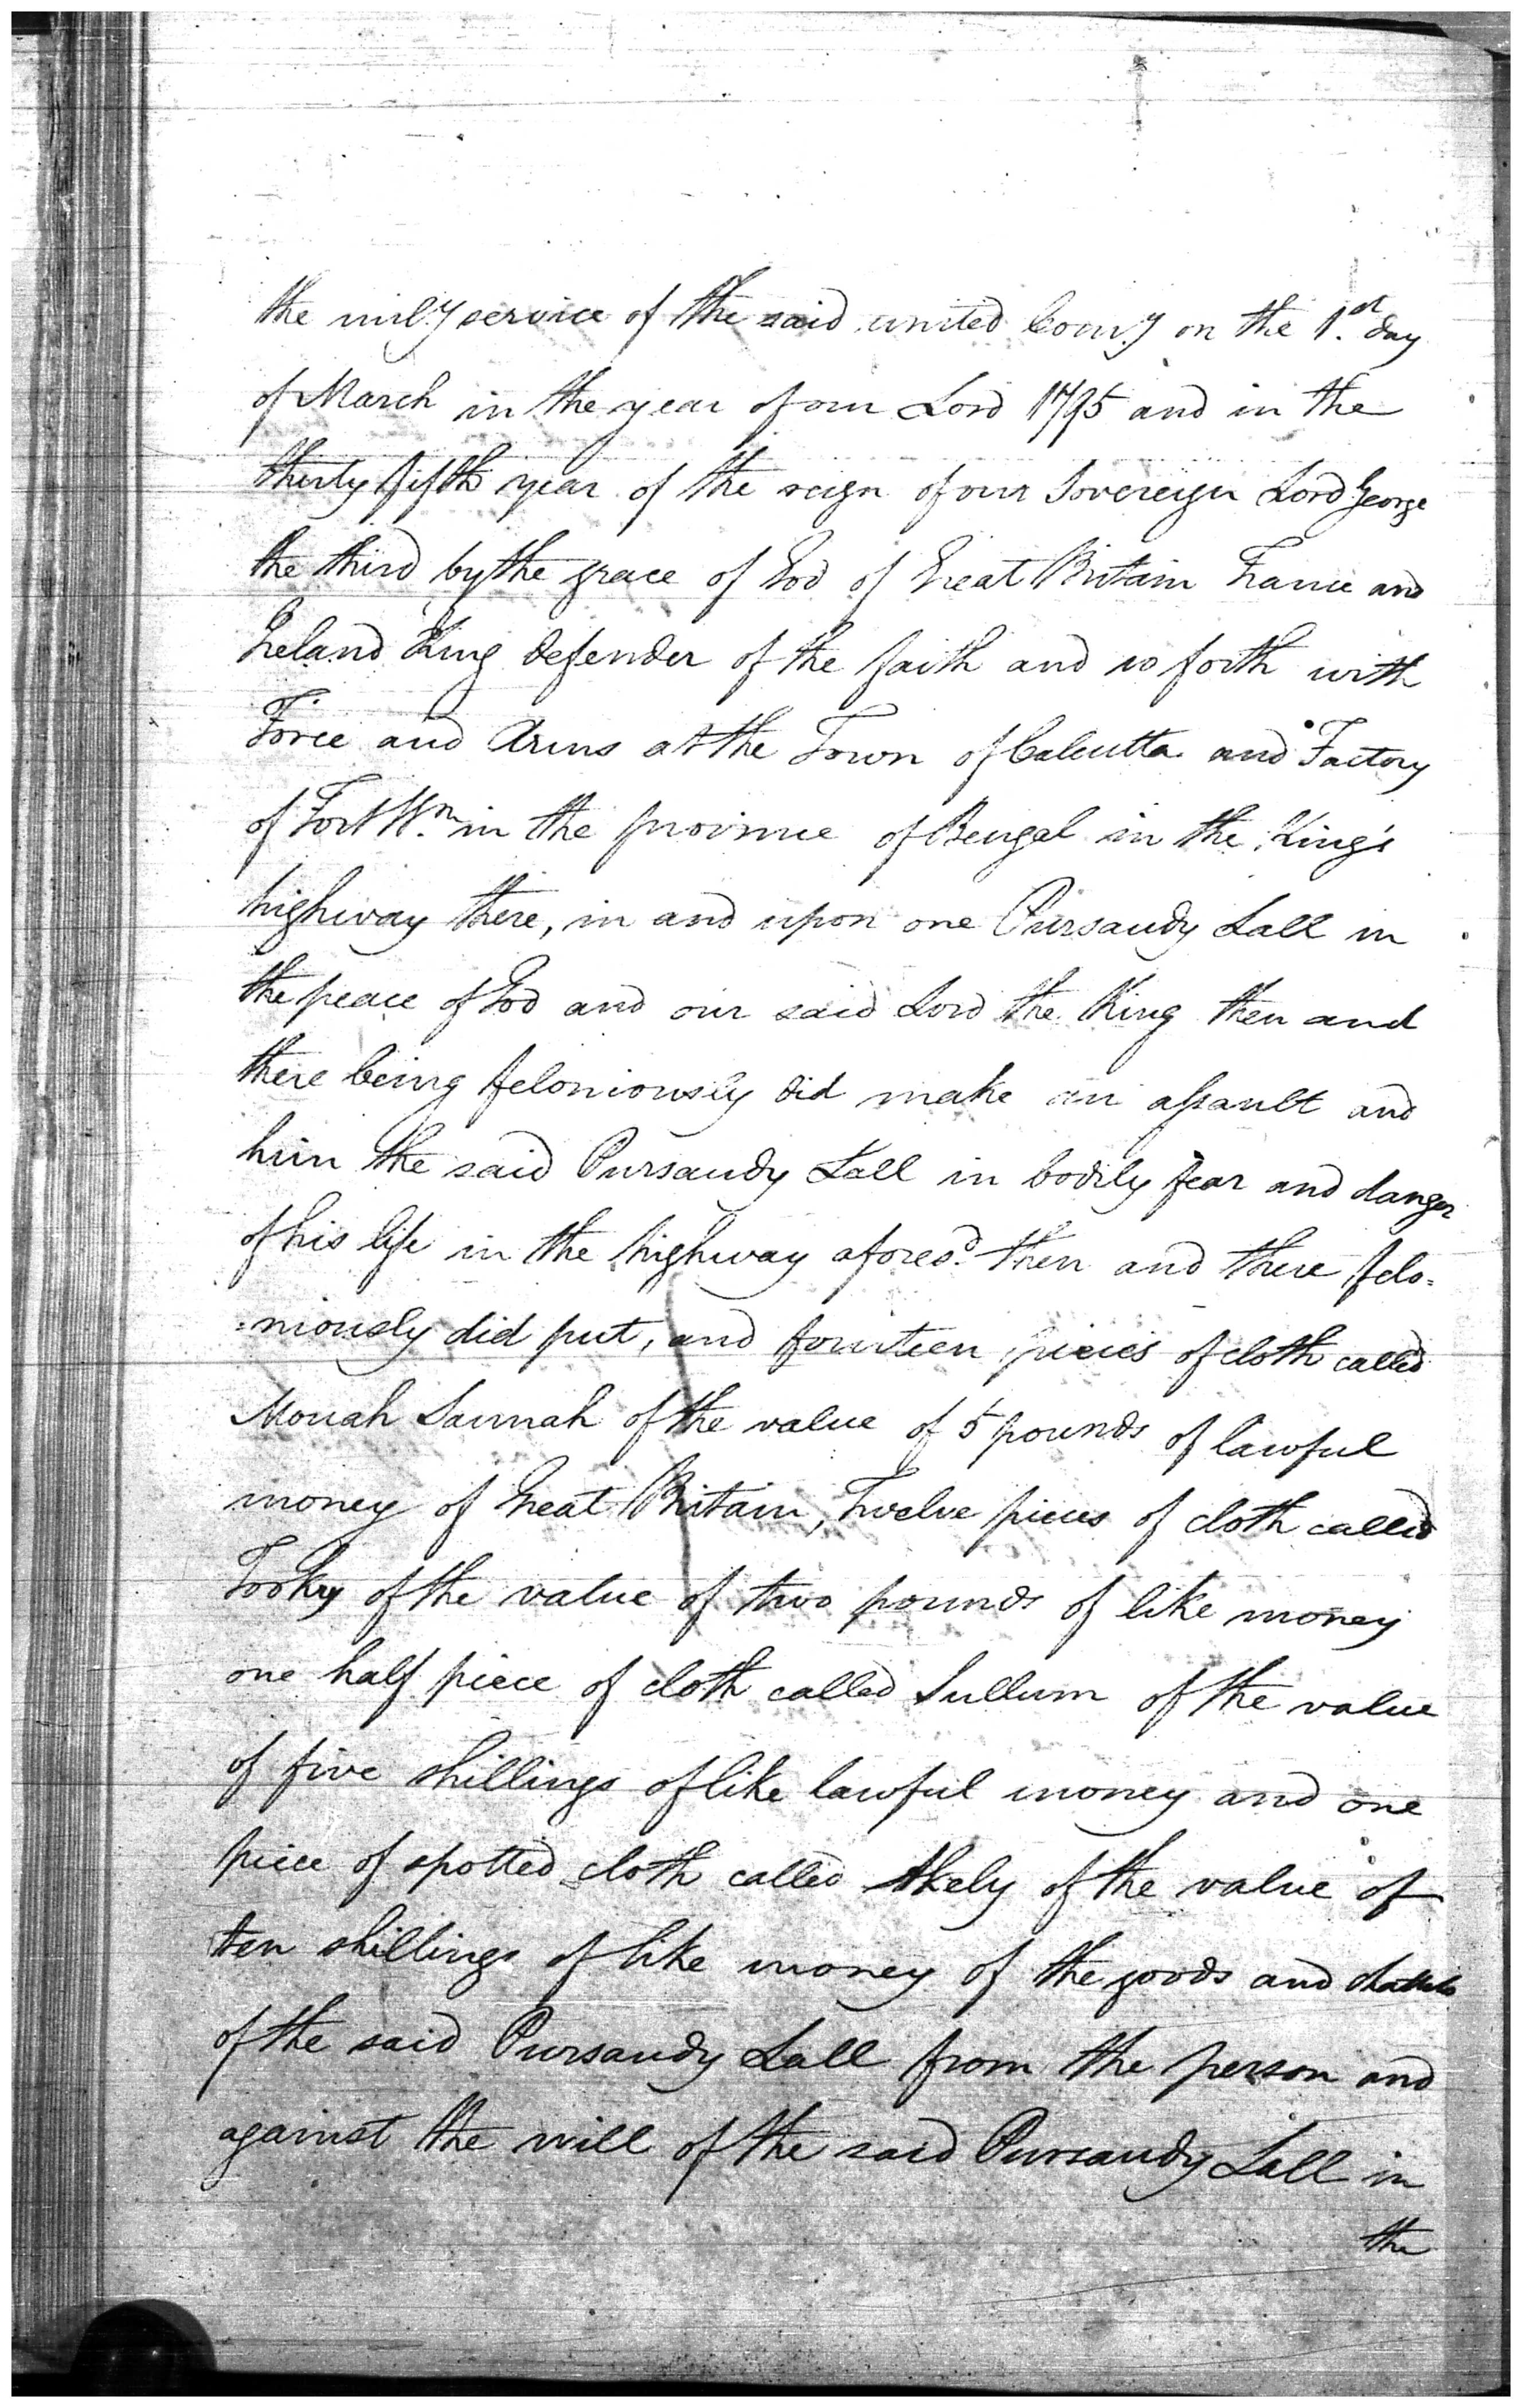 the mily. service of the said united Comy. on the 1st. day
of March in the year of our Lord 1795 and in the
thirty fifth year of the reign of our Sovereign Lord George
the third by the grace of God of Great Britain France and
Ireland King defender of the faith and so forth with
Force and Arms at the Town of Calcutta and Factory
of Fort Wm. in the province of Bengal in the King's
highway there, in and upon one Pursaudy Lall in
the peace of God and our said Lord the King then and
there being feloniously did make an assault and
him the said Pursaudy Lall in bodily fear and danger
of his life in the highway aforesd. then and there felo=
=niously did put, and fourteen pieces of cloth called
Monah Sannah of the value of 5 pounds of lawful
money of Great Britain, Twelve pieces of cloth called
Tooky of the value of two pounds of like money
one half piece of cloth called Sullum of the value
of five shillings of like lawful money and one
piece of spotted cloth called of the value of
ten shillings of like money of the goods and chattels
of the said Pursaudy Lall from the person and
against the will of the said Pursaudy Lall in
the